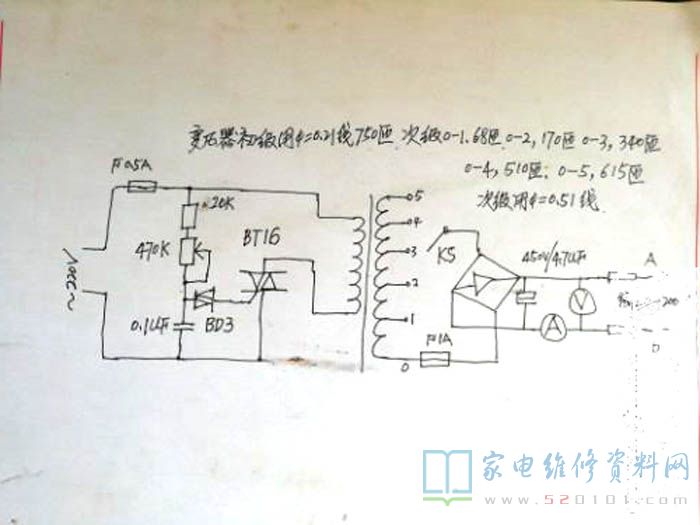 变压器初级用φ=0.21线750匝.次级0-1.68匝0-2,170匝0-3,340匝
0-4,510匝;0-5,615匝
次级用φ=0.51线.
F0.5A
20K
05
04
470K
BT16
03
K5
450V/4.7UF
A
~220V
02
V
200
0.1UF
BD3
1
A
0
F1A
家电维修资料网
www.520101.com